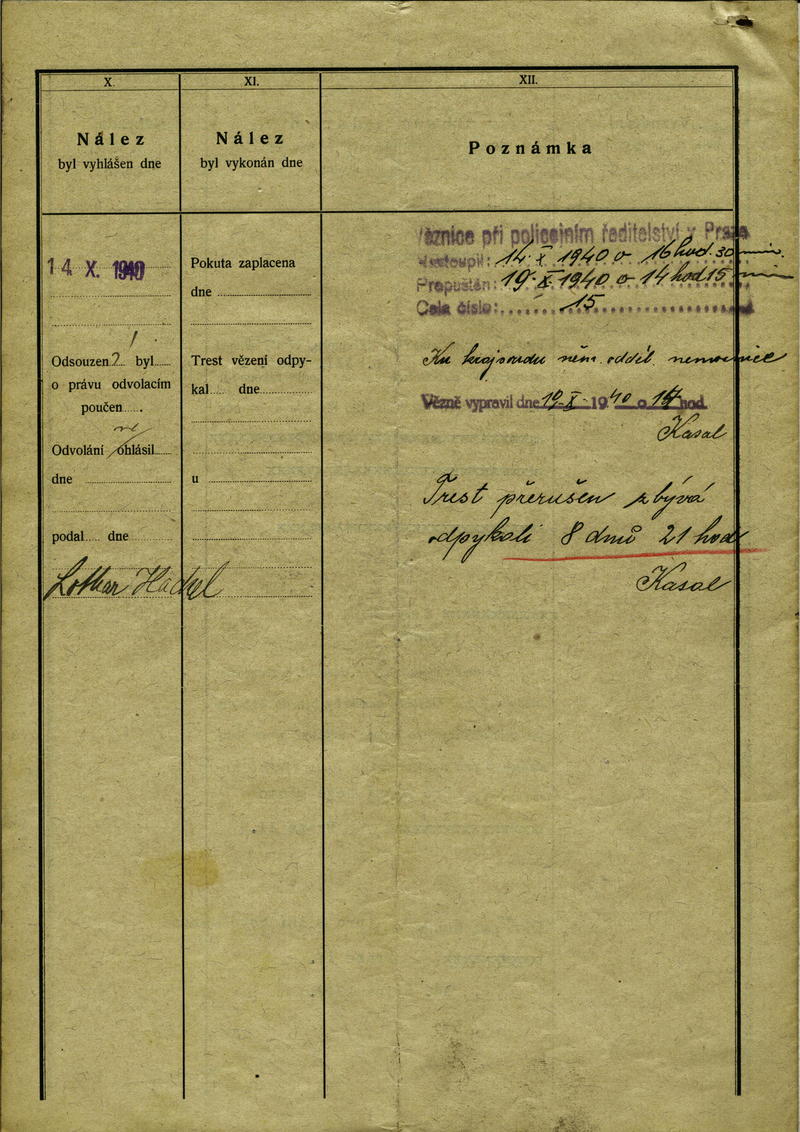 X.
Nález
byl vyhlášen dne
14 X. 1940
Odsouzen byl
o právu odvolacím
poučen
Odvolání ne ohlásil
dne
podal dne
Lothar Hackel
XI.
Nález
byl vykonán dne
Pokuta zaplacena
dne
Trest vězení odpy-
kal dne
u
XII.
Poznámka
Věznice při policejním ředitelství v Praze
Nastoupil: 14. X 1940 o 16 hod. 30 min.
Propuštěn: 19. X. 1940 o 14 hod 15 min
Cela číslo: 15
Ku kraj. soudu něm. odděl. nemocnice
Vězně vypravil dne 19 X. 1940 o hod.
Kasal
Trest přerušen zbývá
odpykati 8 dnů 21 hod
Kasal